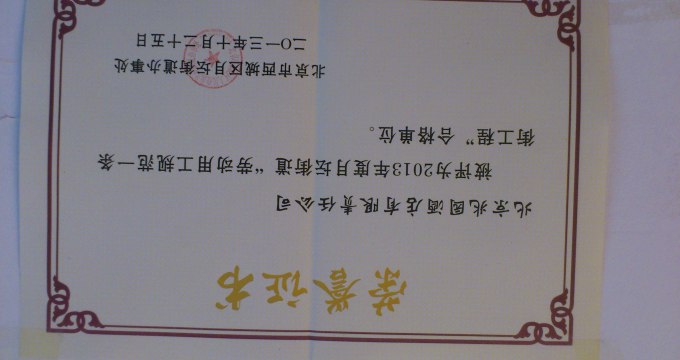 荣誉证书
北京兆园酒店有限责任公司
被评为2013年度月坛街道“劳动用工规范一条
街工程”合格单位。
北京市西城区月坛街道办事处
二〇一三年十月二十五日